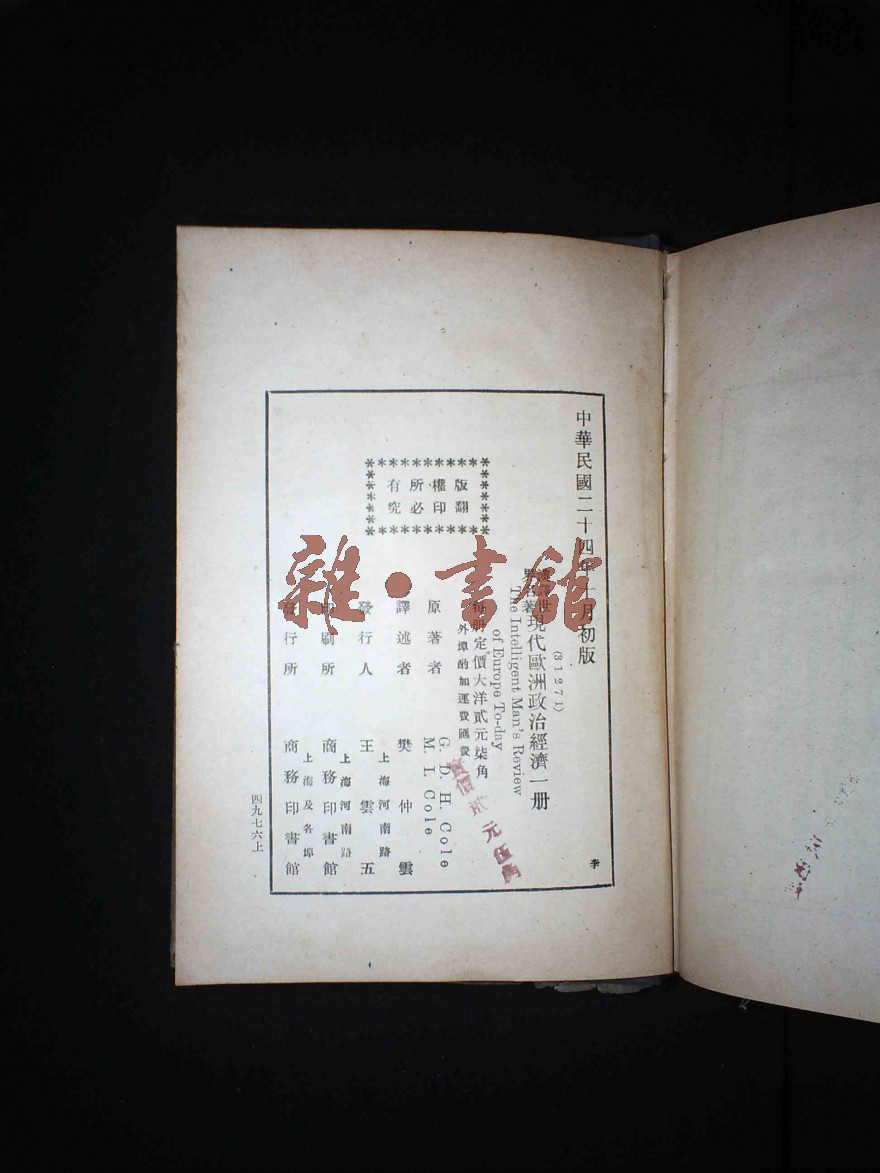 中華民國二十四年十月初版
(31271)
世現代歐洲政治經濟一册
The Intelligent Man's Review
of Europe To-day
每册定價大洋貳元柒角
外埠酌加運費匯費
實價貳元伍角
版權所有
翻印必究
原著者 G. D. H. Cole
M. I. Cole
譯述者 樊仲雲
發行人 王雲五
上海河南路
印刷所 商務印書館
上海河南路
發行所 商務印書館
上海及各埠
李
四九七六上
雜·書館